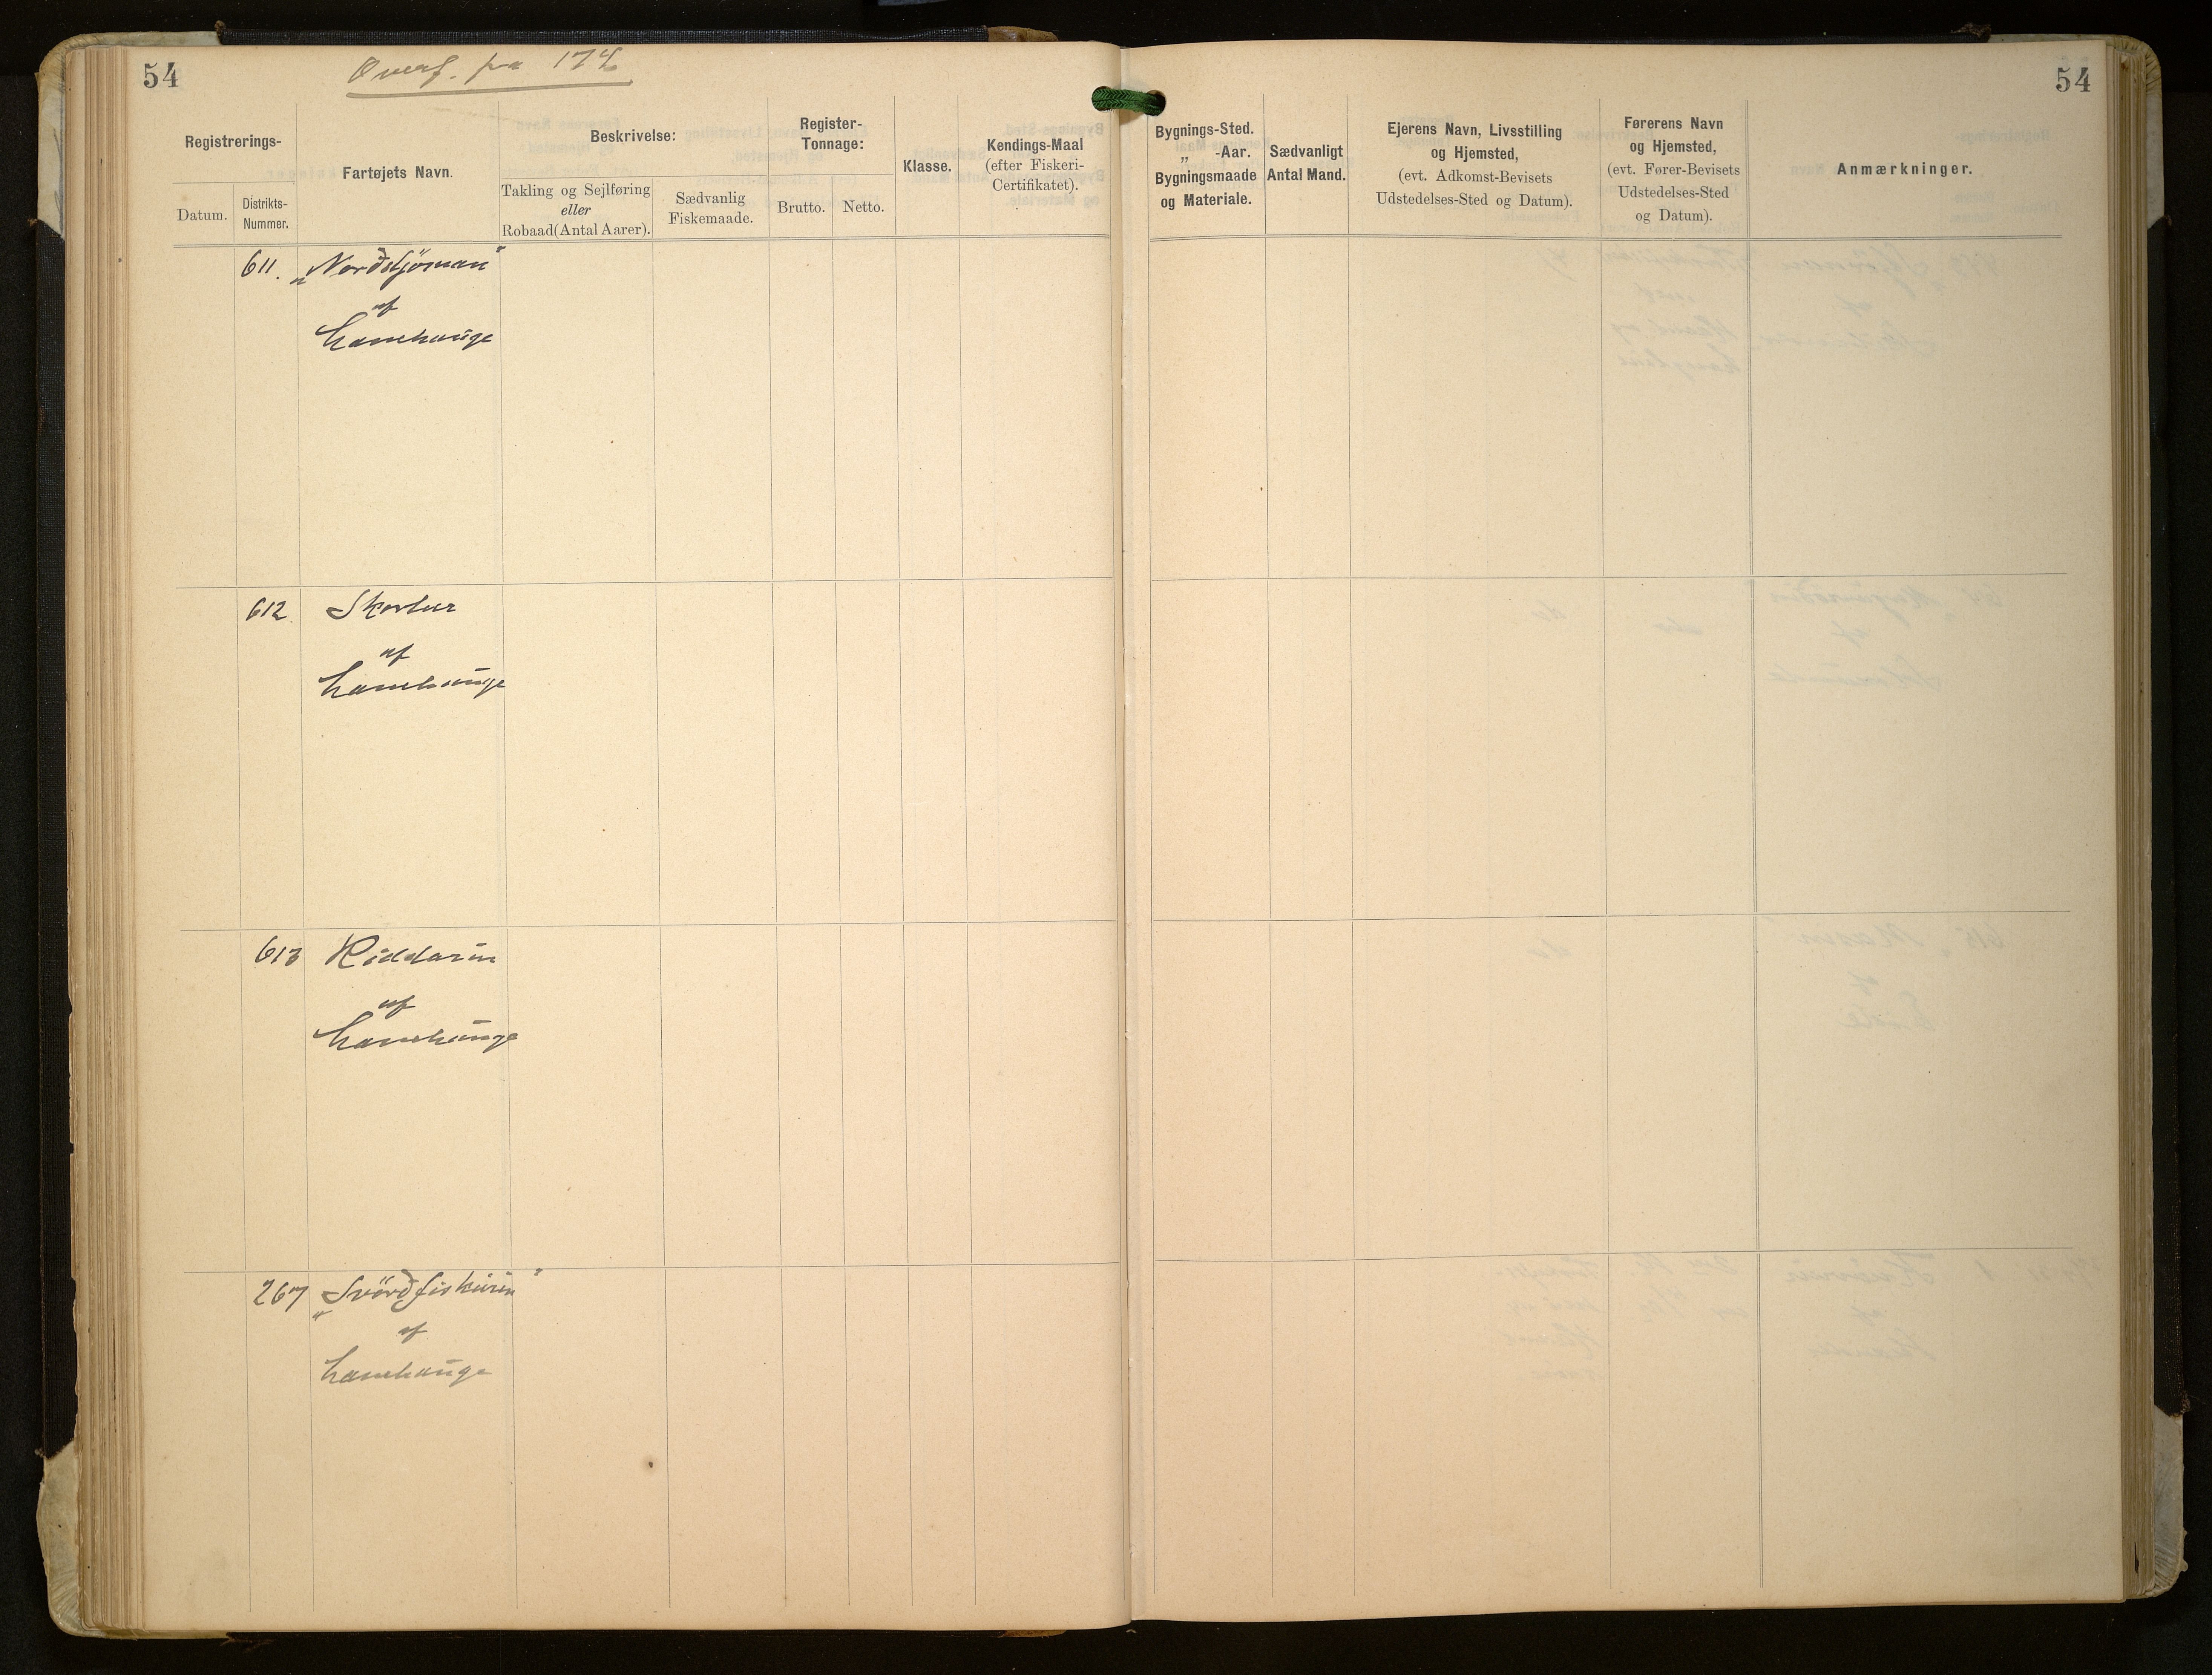 54
Overf. fra 174
54
Registrerings-
Datum.
Distrikts-
Nummer.
Fartøjets Navn.
Beskrivelse:
Takling og Sejlføring
eller
Robaad (Antal Aarer).
Sædvanlig
Fiskemaade.
Register-
Tonnage:
Brutto.
Netto.
Klasse.
Kendings-Maal
(efter Fiskeri-
Certifikatet).
Bygnings-Sted.
„ -Aar.
Bygningsmaade
og Materiale.
Sædvanligt
Antal Mand.
Ejerens Navn, Livsstilling
og Hjemsted,
(evt. Adkomst-Bevisets
Udstedelses-Sted og Datum).
Førerens Navn
og Hjemsted,
(evt. Fører-Bevisets
Udstedelses-Sted
og Datum).
Anmærkninger.
611. „Norðstjörnan"
af
Lamhauge
612. Skortur
af
Lamhauge
613 Riddarin
af
Lamhauge
267 „Svörðfiskurin"
af
Lamhauge